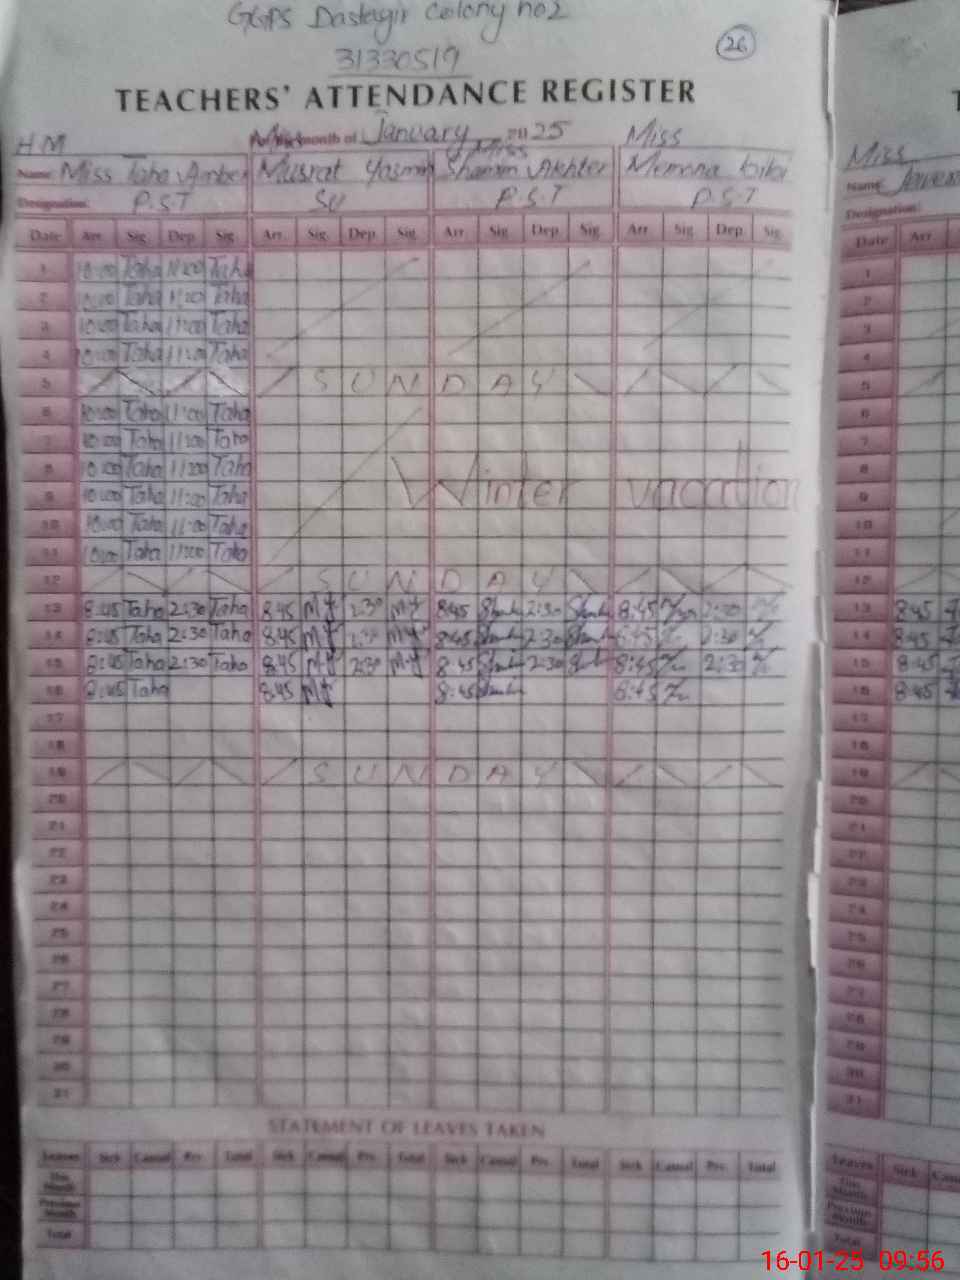 GGPS Dastagir Colony no 2
31330519
26
TEACHERS' ATTENDANCE REGISTER
HM Miss month of January 2025 Miss
Miss
Name Miss Taha Amber Musrat Yasmin Shamim Akhter Memona bibi
Designation: P.S.T P.S.T P.S.T
Date Arr. Sig. Dep. Sig. Arr. Sig. Dep. Sig. Arr. Sig. Dep. Sig. Arr. Sig. Dep. Sig.
1 10:00 Taha 11:00 Taha
2 10:00 Taha 11:00 Taha
3 10:00 Taha 11:00 Taha
4 10:00 Taha 11:00 Taha
5 SUNDAY
6 10:00 Taha 11:00 Taha
7 10:00 Taha 11:00 Taha
8 10:00 Taha 11:00 Taha
9 10:00 Taha 11:00 Taha
Winter vacation
10 10:00 Taha 11:00 Taha
11 10:00 Taha 11:00 Taha
12 SUNDAY
13 8:45 Taha 2:30 Taha 8:45 2:30 8:45 2:30 8:45 2:30
14 8:45 Taha 2:30 Taha 8:45 2:30 8:45 2:30 8:45 2:30
15 8:45 Taha 2:30 Taha 8:45 2:30 8:45 2:30 8:45 2:30
16 8:45 Taha 8:45 8:45 8:45
17
18
19 SUNDAY
20
21
22
23
24
25
26
27
28
29
30
31
STATEMENT OF LEAVES TAKEN
Leaves Sick Casual Prv. Total Sick Casual Prv. Total Sick Casual Prv. Total Sick Casual Prv. Total
This Month
Previous Month
Total
Miss
Name
Designation:
Date Arr
1
2
3
4
5
6
7
8
9
10
11
12
13 8:45
14 8:45
15 8:45
16 8:45
17
18
19
20
21
22
23
24
25
26
27
28
29
30
31
Leaves Sick
This Month
Previous Month
Total
16-01-25 09:56